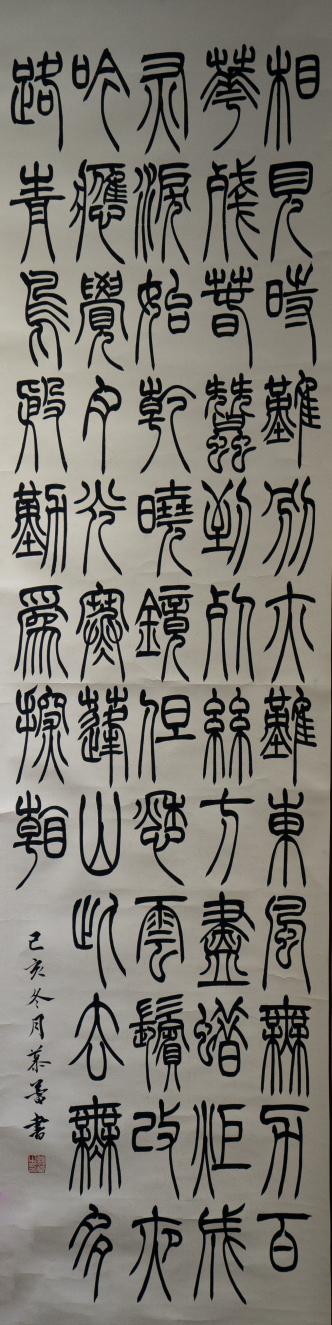 相見時難別亦難東風無力百
華殘春蠶到死絲方盡蜡炬成
灰淚始乾曉鏡但愁雲鬢改夜
吟應覺月光寒蓬山此去無多
路青鳥殷勤爲探看
己亥冬月慕書